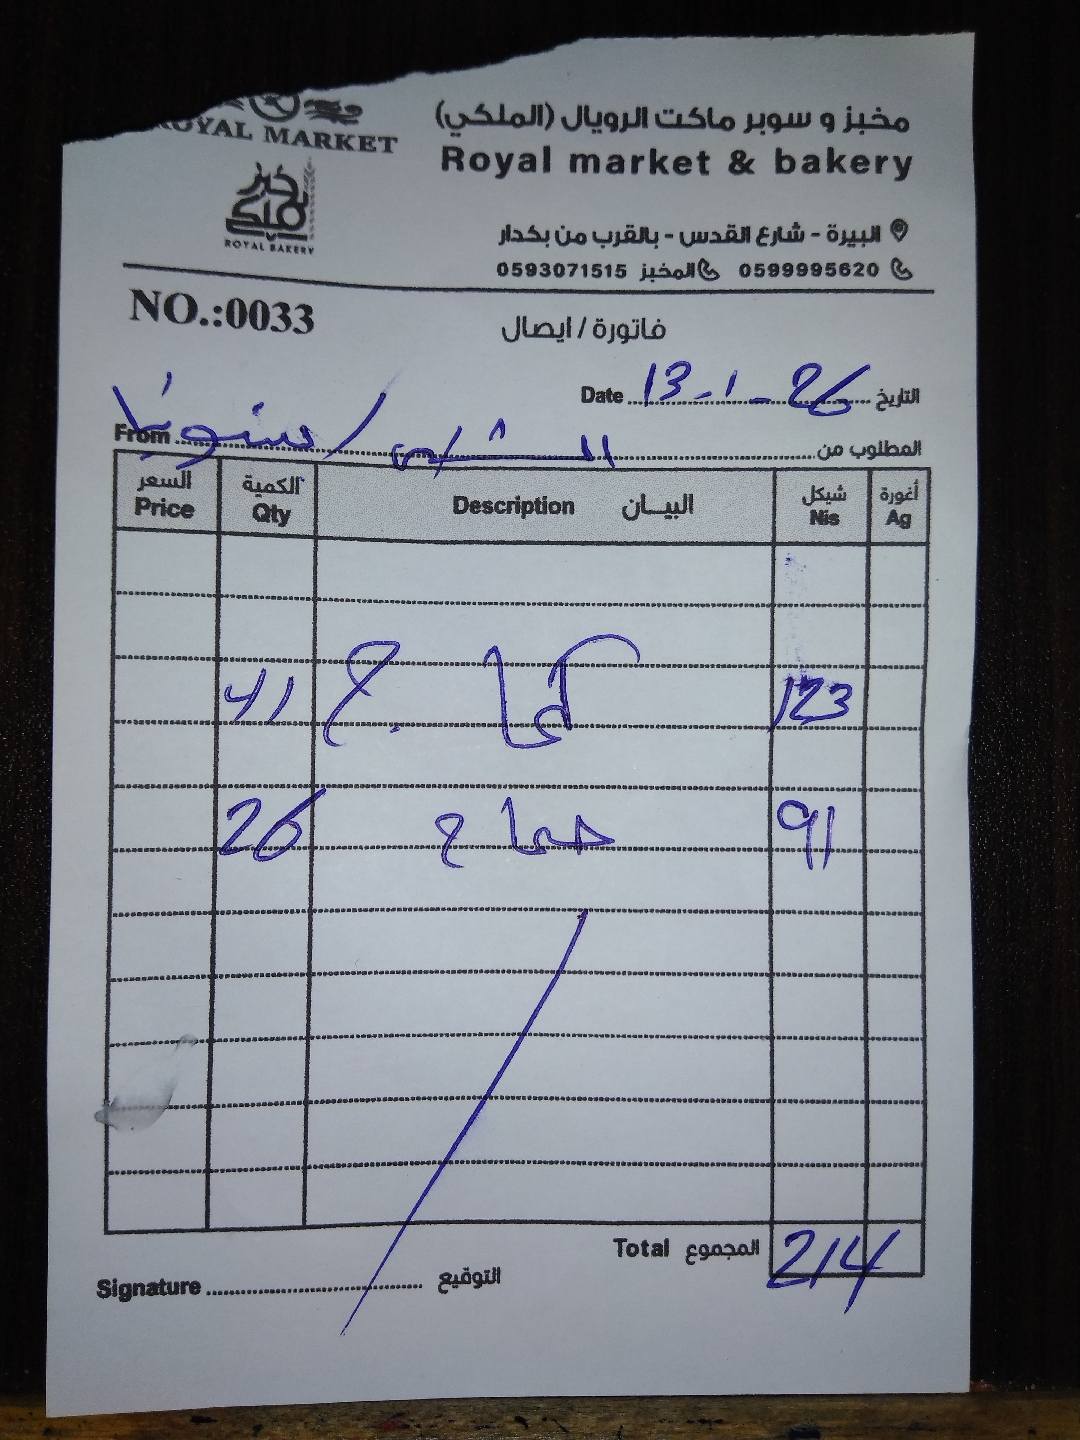 ROYAL MARKET
ROYAL BAKERY
مخبز و سوبر ماكت الرويال (الملكي)
Royal market & bakery
البيرة - شارع القدس - بالقرب من بكدار
0599995620 المخبز 0593071515
NO.:0033
فاتورة / ايصال
Date 13-1-26 التاريخ
From المطلوب من
السعر الكمية البيــان شيكل أغورة
Price Qty Description Nis Ag
41 كماج 123
26 حماح 91
Total المجموع 214
Signature التوقيع